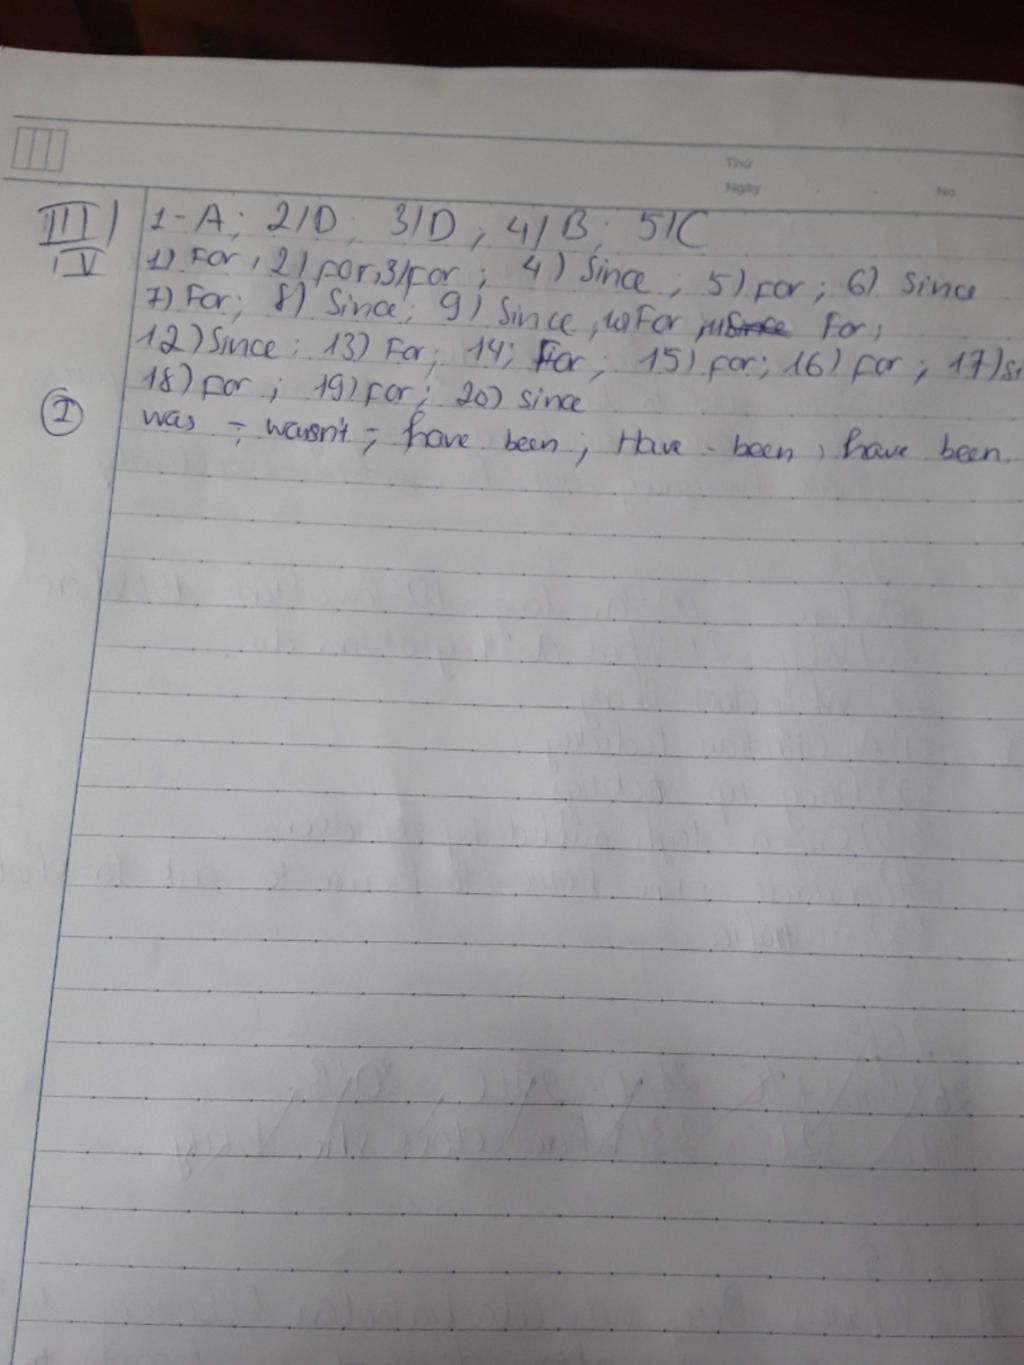 Thứ
Ngày No
III) 1-A; 2/D; 3/D; 4/B; 5/C
IV 1) For, 2) for, 3) for; 4) Since; 5) for; 6) Since
7) For; 8) Since; 9) Since, 10) For, 11) For;
12) Since; 13) For; 14; For; 15) for; 16) for; 17) si
18) for; 19) for; 20) since
I was - wasn't; have been; Have - been, have been.